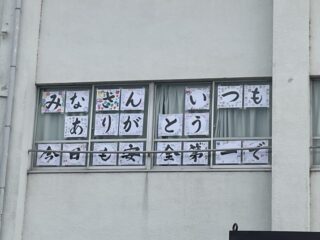 みなさん いつも
ありがとう
今日も安全第一で